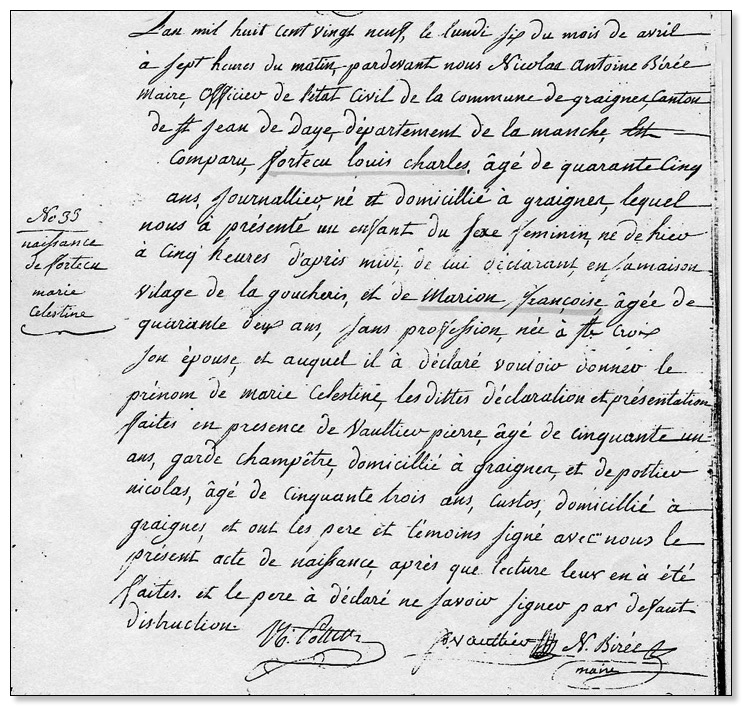 L'an mil huit cent vingt neuf, le lundi six du mois de avril
à sept heures du matin, pardevant nous Nicolas Antoine Birée
Maire, Officier de l'état Civil de la commune de graignes Canton
de St Jean de Daye, département de la manche, Est
Comparu, fortecu louis charles, âgé de quarante Cinq
ans, Journallier, né et domicillié à graignes, lequel
nous à présenté un enfant du sexe feminin, né de hier
à Cinq heures d'après midi, de lui déclarant en sa maison
vilage de la goucherie, et de Marion, françoise, âgée de
quarante deux ans, sans profession, née à Ste Croix
son épouse, et auquel il à déclaré vouloir donner le
prénom de marie Celestine, les dittes déclaration et présentation
faites en presence de Vaultier pierre, âgé de cinquante un
ans, garde champêtre, domicillié à graignes, et de pottier
nicolas, âgé de Cinquante trois ans, Custos, domicillié à
graignes, et ont les pere et témoins signé avec nous le
présent acte de naissance, après que lecture leur en à été
faites. et le pere à déclaré ne savoir signer par defaut
distruction
No 35
naissance
de fortecu
marie
Celestine
N. Pottier
P. vaultier
N. Birée
maire